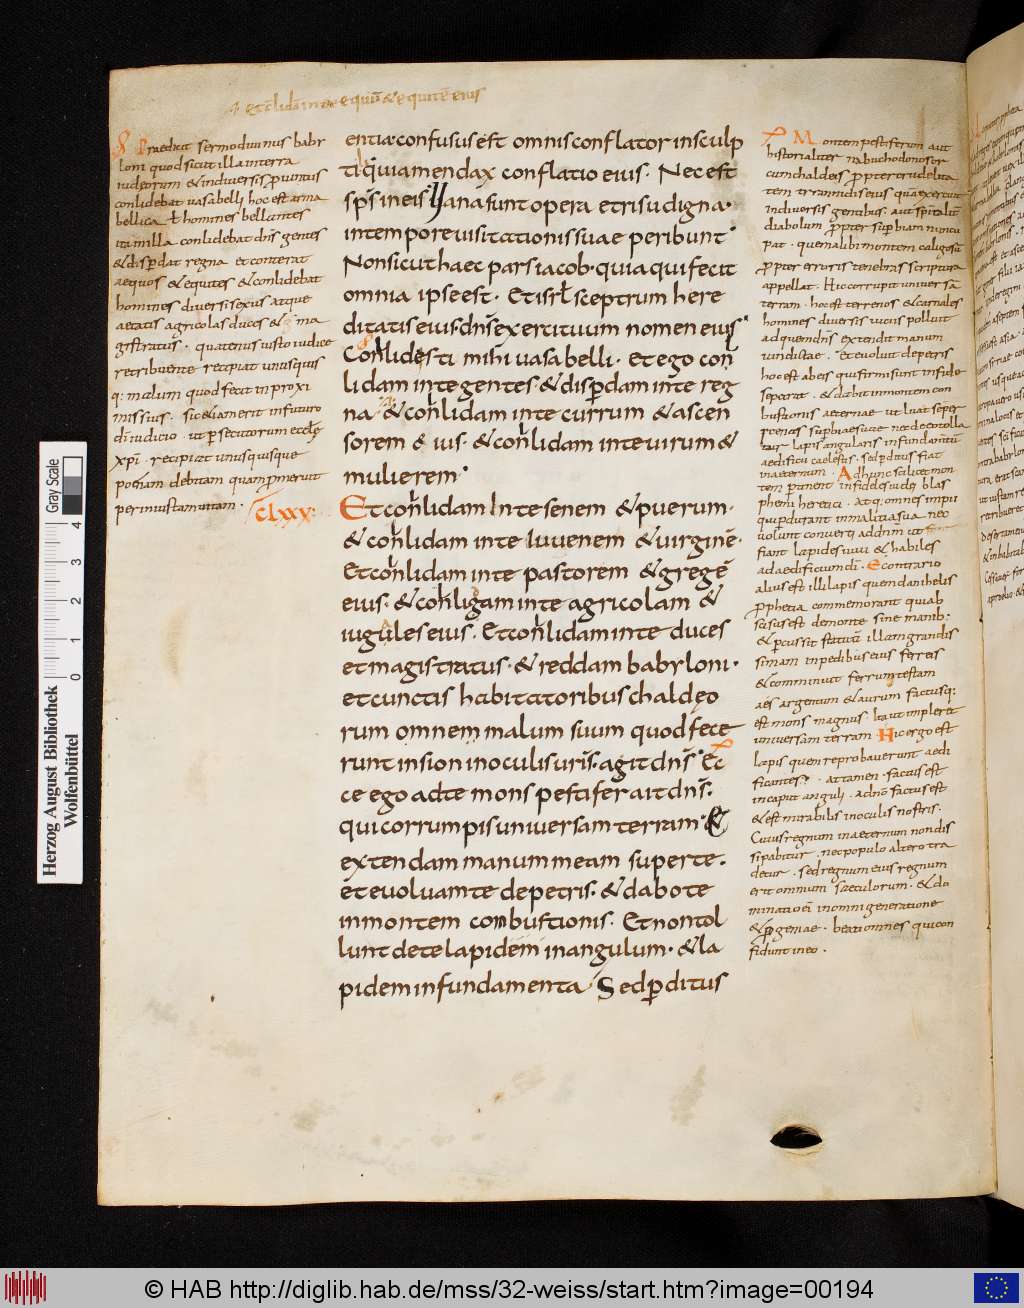 ⁊ et c̄lidā in te equū & equitē eius
Praedicit sermo divinus baby
loni quod sicut illa in terra
iudeorum & in diversis provintiis
conlidebat vasa belli hoc est arma
bellica ł homines bellantes
ita in illa conlidebat dn̄s gentes
& disperdat regna et conterat
aequos & equites & conlidebat
homines diversi sexus atque
aetatis agricolas duces & ma
gistratus · quatenus iusto iudice
retribuente recipiat unusquis
q: malum quod fecit in proxi
mis suis : sic etiam erit in futuro
di iudicio · ut persecutorum eccl̄ę
xp̄i · recipiat unusquisque
poenam debitam quam promeruit
per iniustam vitam ·
CLXX:
entia · confusus est omnis conflator in sculp
tili quia mendax conflatio eius · Nec est
sp̄s in eis Vana sunt opera et risu digna ·
in tempore visitationis suae peribunt ·
Non sicut haec pars iacob · quia qui fecit
omnia ipse est · Et isrł sceptrum here
ditatis eius · dn̄s exercituum nomen eius
Conlidesti mihi vasa belli · et ego con
lidam in te gentes · & disperdam in te reg
na · & conlidam in te currum & ascen
sorem eius · & conlidam in te virum &
mulierem ·
Et conlidam In te senem & puerum ·
& conlidam in te iuvenem & virginē ·
Et conlidam in te pastorem & gregē
eius · & conligam in te agricolam &
iugales eius · Et conlidam in te duces
et magistratus · & reddam babyloni ·
et cunctis habitatoribus chaldeo
rum omnem malum suum quod fece
runt in sion in oculis vr̄is · agit dn̄s Ec
ce ego ad te mons pestifer ait dn̄s ·
qui corrumpis universam terram · &
extendam manum meam super te ·
et evoluam te de petris · & dabo te
in montem combustionis · Et non tol
lunt de te lapidem in angulum · & la
pidem in fundamenta Sed perditus
Montem pestiferum aut
historialiter nabuchodonosor
cum chaldeis propter crudelita
tem tyrannidis eius quā exercuit
in diversis gentibus · aut sp̄italit
diabolum propter superbiam nuncu
pat · quem alibi montem caligosū
propter erroris tenebras scriptura
appellat · Hic corrupit universā
terram · hoc est terrenos & carnales
homines diversis viciis polluit
ad quem dn̄s extendit manum
vindictae · Et evoluit de petris
hoc est ab eis qui firmi sunt in fide
separat · & dabit in montem con
bustionis aeternae ut luat semper
poenas superbiae suae nec de eo tolla
tur lapis angularis in fundamentū
aedificii caelestis · sed perditus fiat
in aeternum · Ad hunc scilicet mon
tem pertinent infideles iudęi blas
phemi heretici · Atq; omnes impii
qui perdurant in malitia sua nec
volunt converti ad dn̄m ut
fiant lapides vivi & habiles
ad aedificium dī · E contrario
alius est ille lapis quem danihelis
prophetia commemorant qui ab
scisus est de monte sine manib:
& percussit statuā illam grandis
simam in pedibus eius ferreis
& comminuit ferrum testam
aes argentum & aurum factusq:
est mons magnus Ita ut impleret
universam terram Hic ergo est
lapis quem reprobaverunt aedi
ficantes · attamen · factus est
in caput anguli · a dn̄o factus est
& est mirabilis in oculis nostris ·
Cuius regnum in aeternum non dis
sipabitur · nec populo altero tra
detur · sed regnum eius regnum
erit omnium saeculorum · & do
minatio eī in omni generatione
& progeniae · beati omnes qui con
fidunt in eo ·
Herzog August Bibliothek
Wolfenbüttel
Gray Scale
0 1 2 3 4
© HAB http://diglib.hab.de/mss/32-weiss/start.htm?image=00194